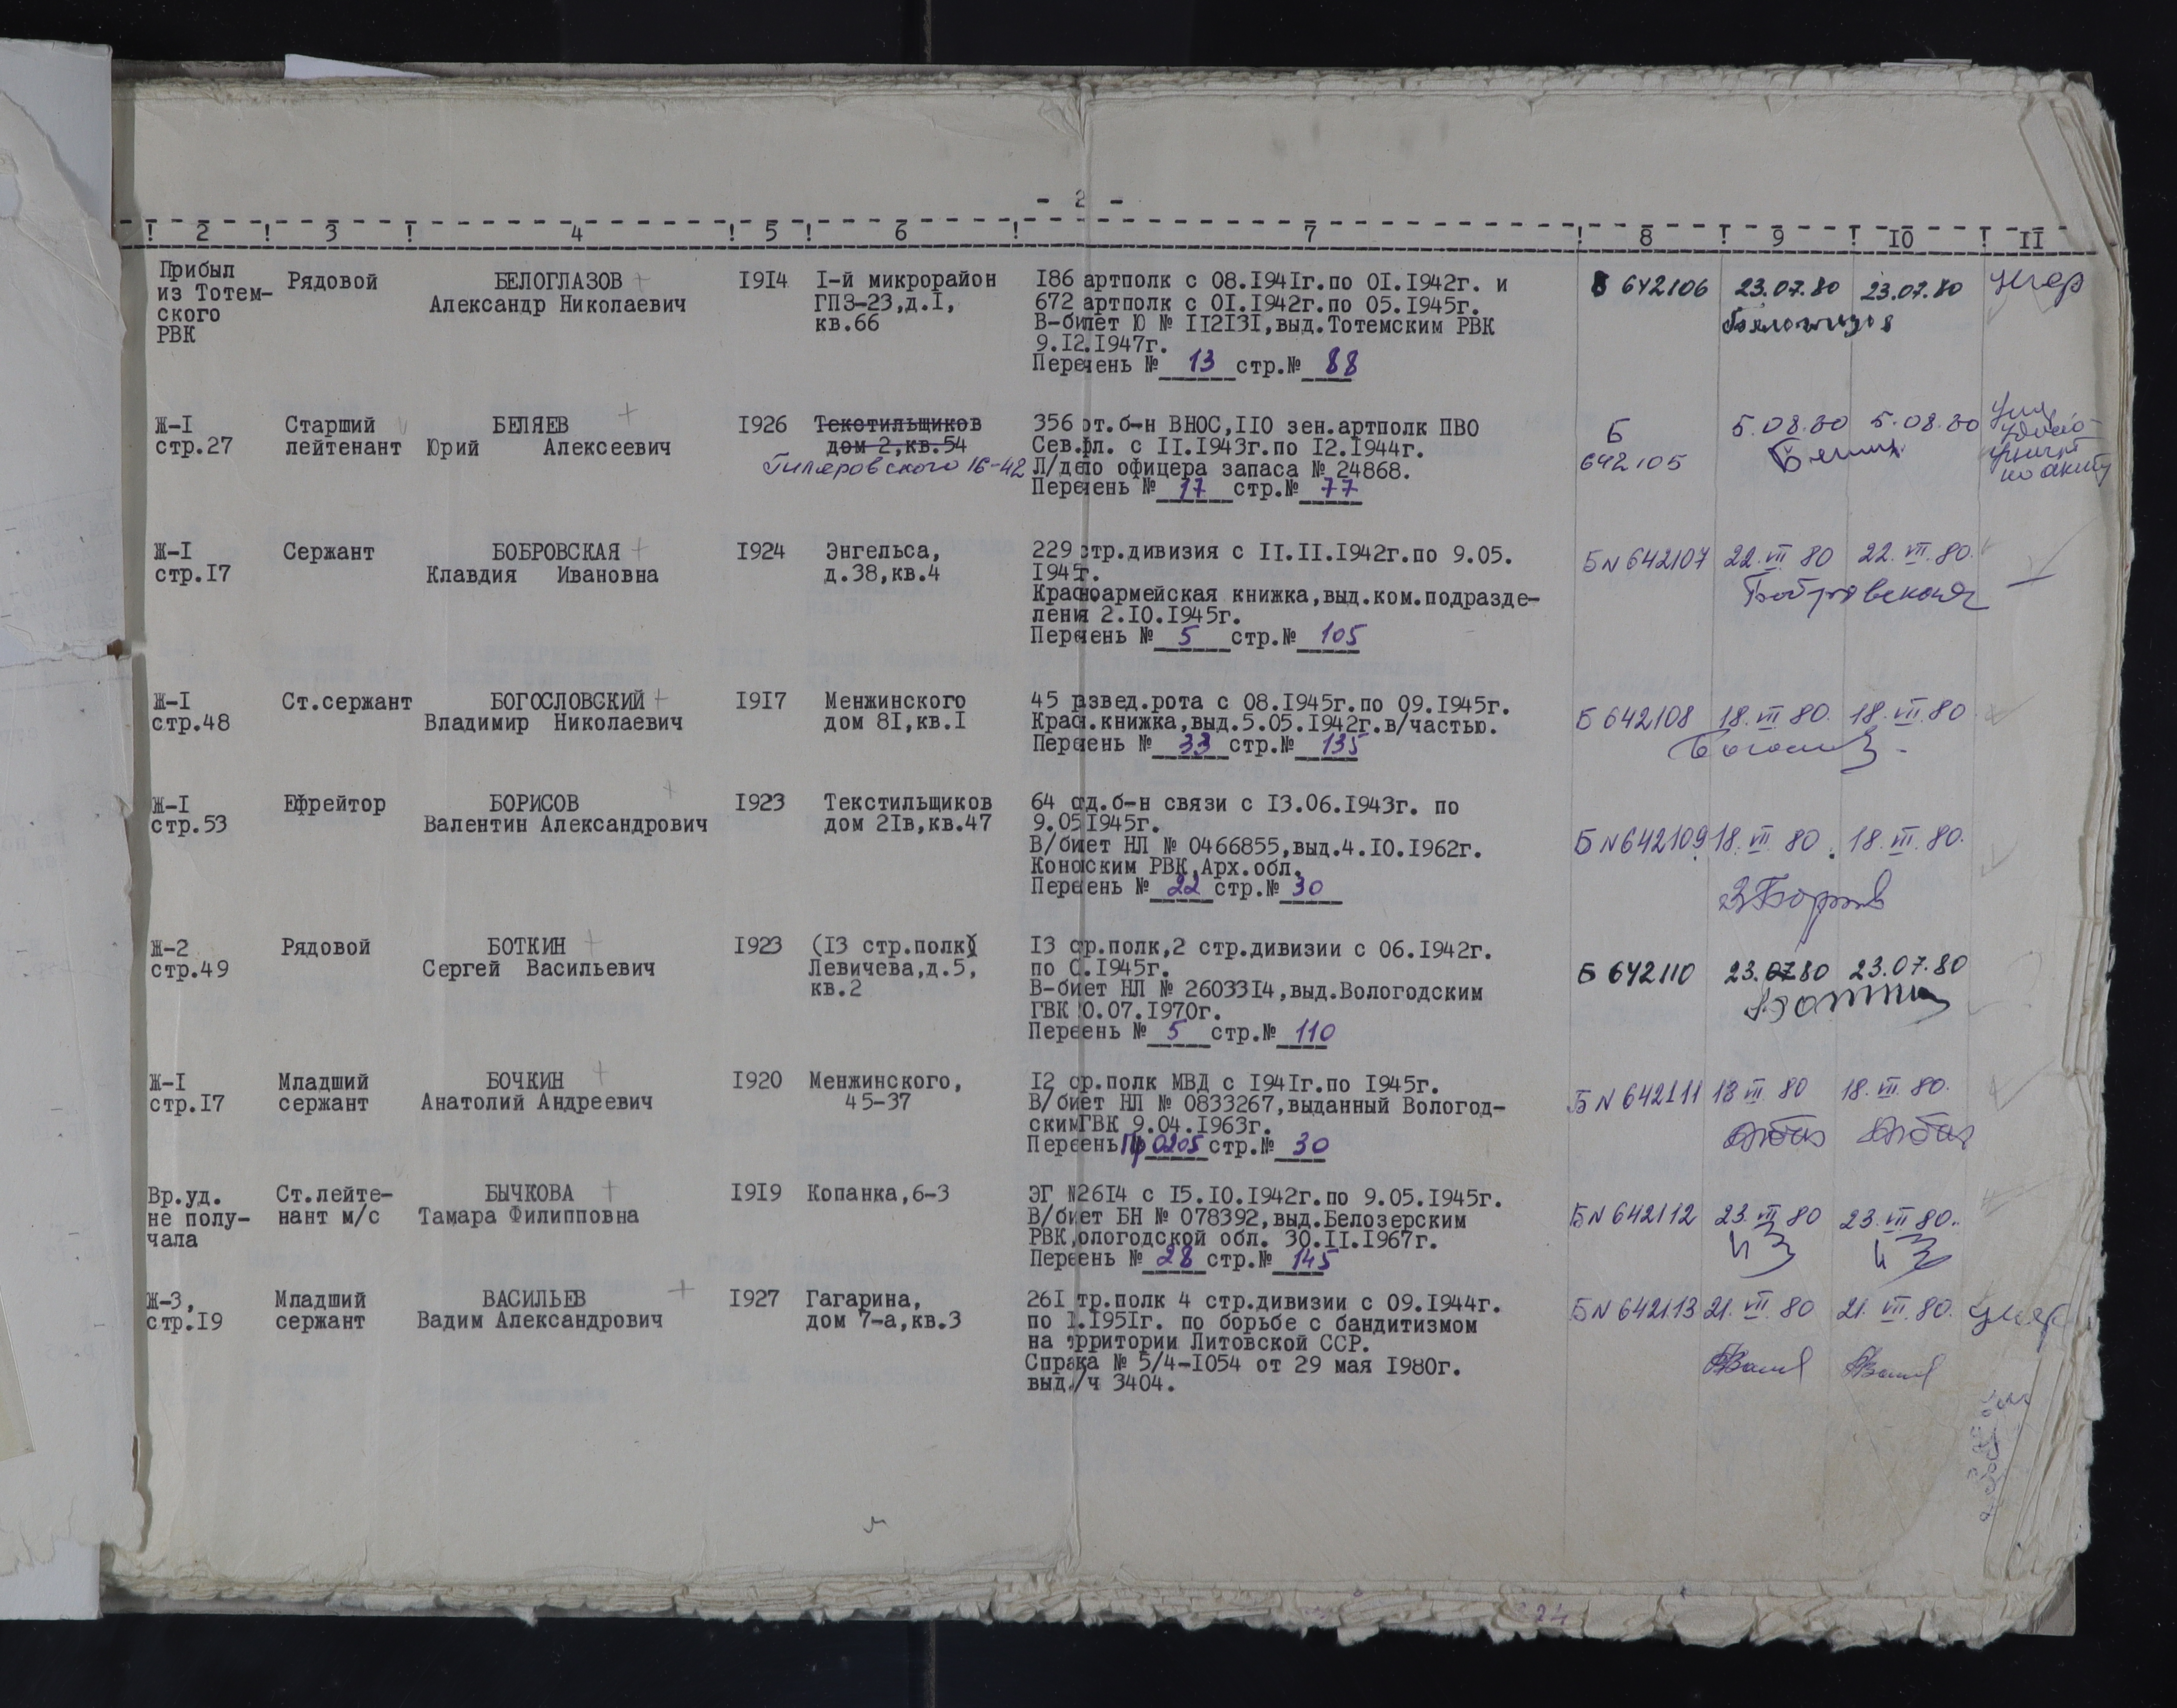 - 2 -
! 2 ! 3 ! 4 ! 5 ! 6 ! 7 ! 8 ! 9 ! 10 ! II
Прибыл из Тотем- ского РВК
Рядовой
БЕЛОГЛАЗОВ +
Александр Николаевич
I9I4
I-й микрорайон
ГПЗ-23,д.I,
кв.66
I86 артполк с 08.I94Iг.по 0I.I942г. и
672 артполк с 0I.I942г.по 05.I945г.
В-билет Ю № II2I3I,выд.Тотемским РВК
9.I2.I947г.
Перечень № 13 стр.№ 88
Б 642106 23.07.80 23.07.80 умер
Белоглазов
Ж-I
стр.27
Старший
лейтенант
БЕЛЯЕВ +
Юрий Алексеевич
I926
Текстильщиков
дом 2,кв.54
Гиляровского 16-42
356 от.б-н ВНОС,IIO зен.артполк ПВО
Сев.фл. с II.I943г.по I2.I944г.
Л/дело офицера запаса № 24868.
Перечень № 17 стр.№ 77
Б
642105
5.08.80 5.08.80
по акту
Ж-I
стр.I7
Сержант
БОБРОВСКАЯ +
Клавдия Ивановна
I924
Энгельса,
д.38,кв.4
229 стр.дивизия с II.II.I942г.по 9.05.
I945г.
Красноармейская книжка,выд.ком.подразде-
ления 2.I0.I945г.
Перечень № 5 стр.№ 105
Б N 642107 22.VII.80 22.VII.80.
Бобровская
Ж-I
стр.48
Ст.сержант
БОГОСЛОВСКИЙ +
Владимир Николаевич
I9I7
Менжинского
дом 8I,кв.I
45 развед.рота с 08.I945г.по 09.I945г.
Красн.книжка,выд.5.05.I942г.в/частью.
Перечень № 33 стр.№ 135
Б 642108 18.VII.80. 18.VII.80
Ж-I
стр.53
Ефрейтор
БОРИСОВ +
Валентин Александрович
I923
Текстильщиков
дом 2Iв,кв.47
64 отд.б-н связи с I3.06.I943г. по
9.05I945г.
В/биет НЛ № 0466855,выд.4.I0.I962г.
Коноским РВК,Арх.обл.
Переень № 22 стр.№ 30
Б N 642109 18.VII.80 18.VII.80.
Ж-2
стр.49
Рядовой
БОТКИН +
Сергей Васильевич
I923
(I3 стр.полк)
Левичева,д.5,
кв.2
I3 ср.полк,2 стр.дивизии с 06.I942г.
по 0.I945г.
В-биет НЛ № 26033I4,выд.Вологодским
ГВК 0.07.I970г.
Переень № 5 стр.№ 110
Б 642110 23.07.80 23.07.80
Ж-I
стр.I7
Младший
сержант
БОЧКИН +
Анатолий Андреевич
I920
Менжинского,
45-37
I2 ср.полк МВД с I94Iг.по I945г.
В/биет НЛ № 0833267,выданный Вологод-
скимГВК 9.04.I963г.
Переень Пр 0205 стр.№ 30
Б N 642111 18 VII 80 18.VII.80.
Вр.уд.
не полу-
чала
Ст.лейте-
нант м/с
БЫЧКОВА +
Тамара Филипповна
I9I9
Копанка,6-3
ЭГ №26I4 с I5.I0.I942г.по 9.05.I945г.
В/биет БН № 078392,выд.Белозерским
РВК,ологодской обл. 30.II.I967г.
Переень № 28 стр.№ 145
Б N 642112 23.VII 80 23.VII.80.
Ж-3,
стр.I9
Младший
сержант
ВАСИЛЬЕВ +
Вадим Александрович
I927
Гагарина,
дом 7-а,кв.3
26I тр.полк 4 стр.дивизии с 09.I944г.
по I.I95Iг. по борьбе с бандитизмом
на трритории Литовской ССР.
Спрака № 5/4-I054 от 29 мая I980г.
выд./ч 3404.
Б N 642113 21.VII.80 21.VII.80. умер